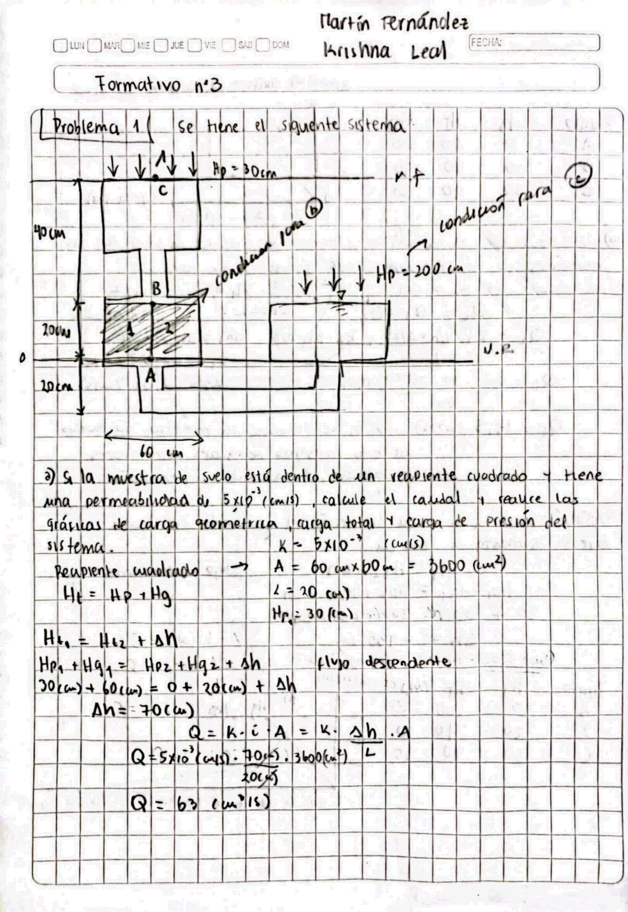 Martín Fernández
Krishna Leal
LUN MAR MIE JUE VIE SAB DOM
FECHA:
Formativo n°3
Problema 1 Se tiene el siguiente sistema
1
Hp = 30cm
C
40cm
condicion para b
condición para c
Hp = 200 cm
B
20cm
1 2
0
A
20cm
60 cm
a) Si la muestra de suelo está dentro de un recipiente cuadrado y tiene
una permeabilidad de 5x10⁻³ (cm/s), calcule el caudal y realice las
gráficas de carga geométrica, carga total y carga de presión del
sistema.
K = 5x10⁻³ (cm/s)
Recipiente cuadrado → A = 60 cm x 60 cm = 3600 (cm²)
Ht = Hp + Hg
L = 20 (cm)
Hp₁ = 30 (cm)
Ht₁ = Ht2 + Δh
Hp₁ + Hg₁ = Hp2 + Hg2 + Δh flujo descendente
30(cm) + 60(cm) = 0 + 20(cm) + Δh
Δh = 70(cm)
Q = K · i · A = K · Δh/L · A
Q = 5x10⁻³ (cm/s) · 70(cm)/20(cm) · 3600(cm²)
Q = 63 (cm³/s)